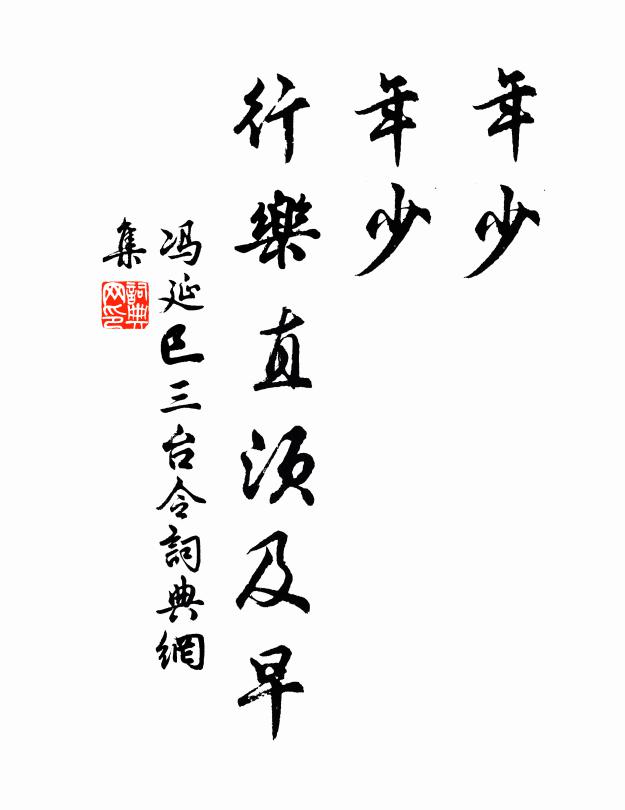 年少
年少
行樂直須及早
冯延巳三台令詞典網
集
詞典
网印